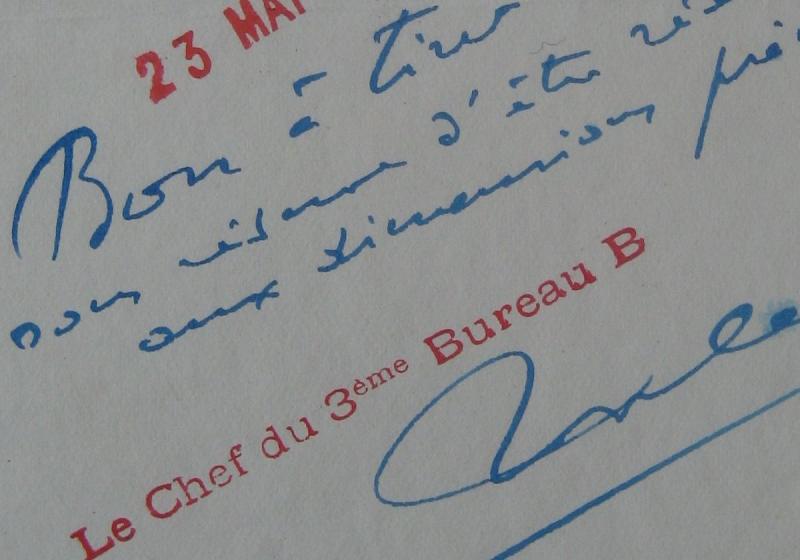 23 MAI
Bon à tirer
sous réserve d'être
aux dimensions
Le Chef du 3ème Bureau B